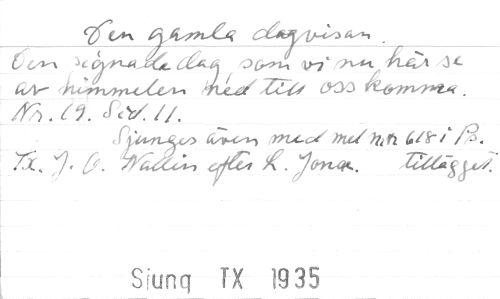 Den gamla dagvisan.
Den signade dag, som vi nu här se
av himmelen ned till oss komma.
Nr. 19. Sid. 11.
Sjunges även med mel n:r 618 i Ps.
Tx. J. O. Wallin efter L. Jonæ. tillägget.
Sjung TX 1935